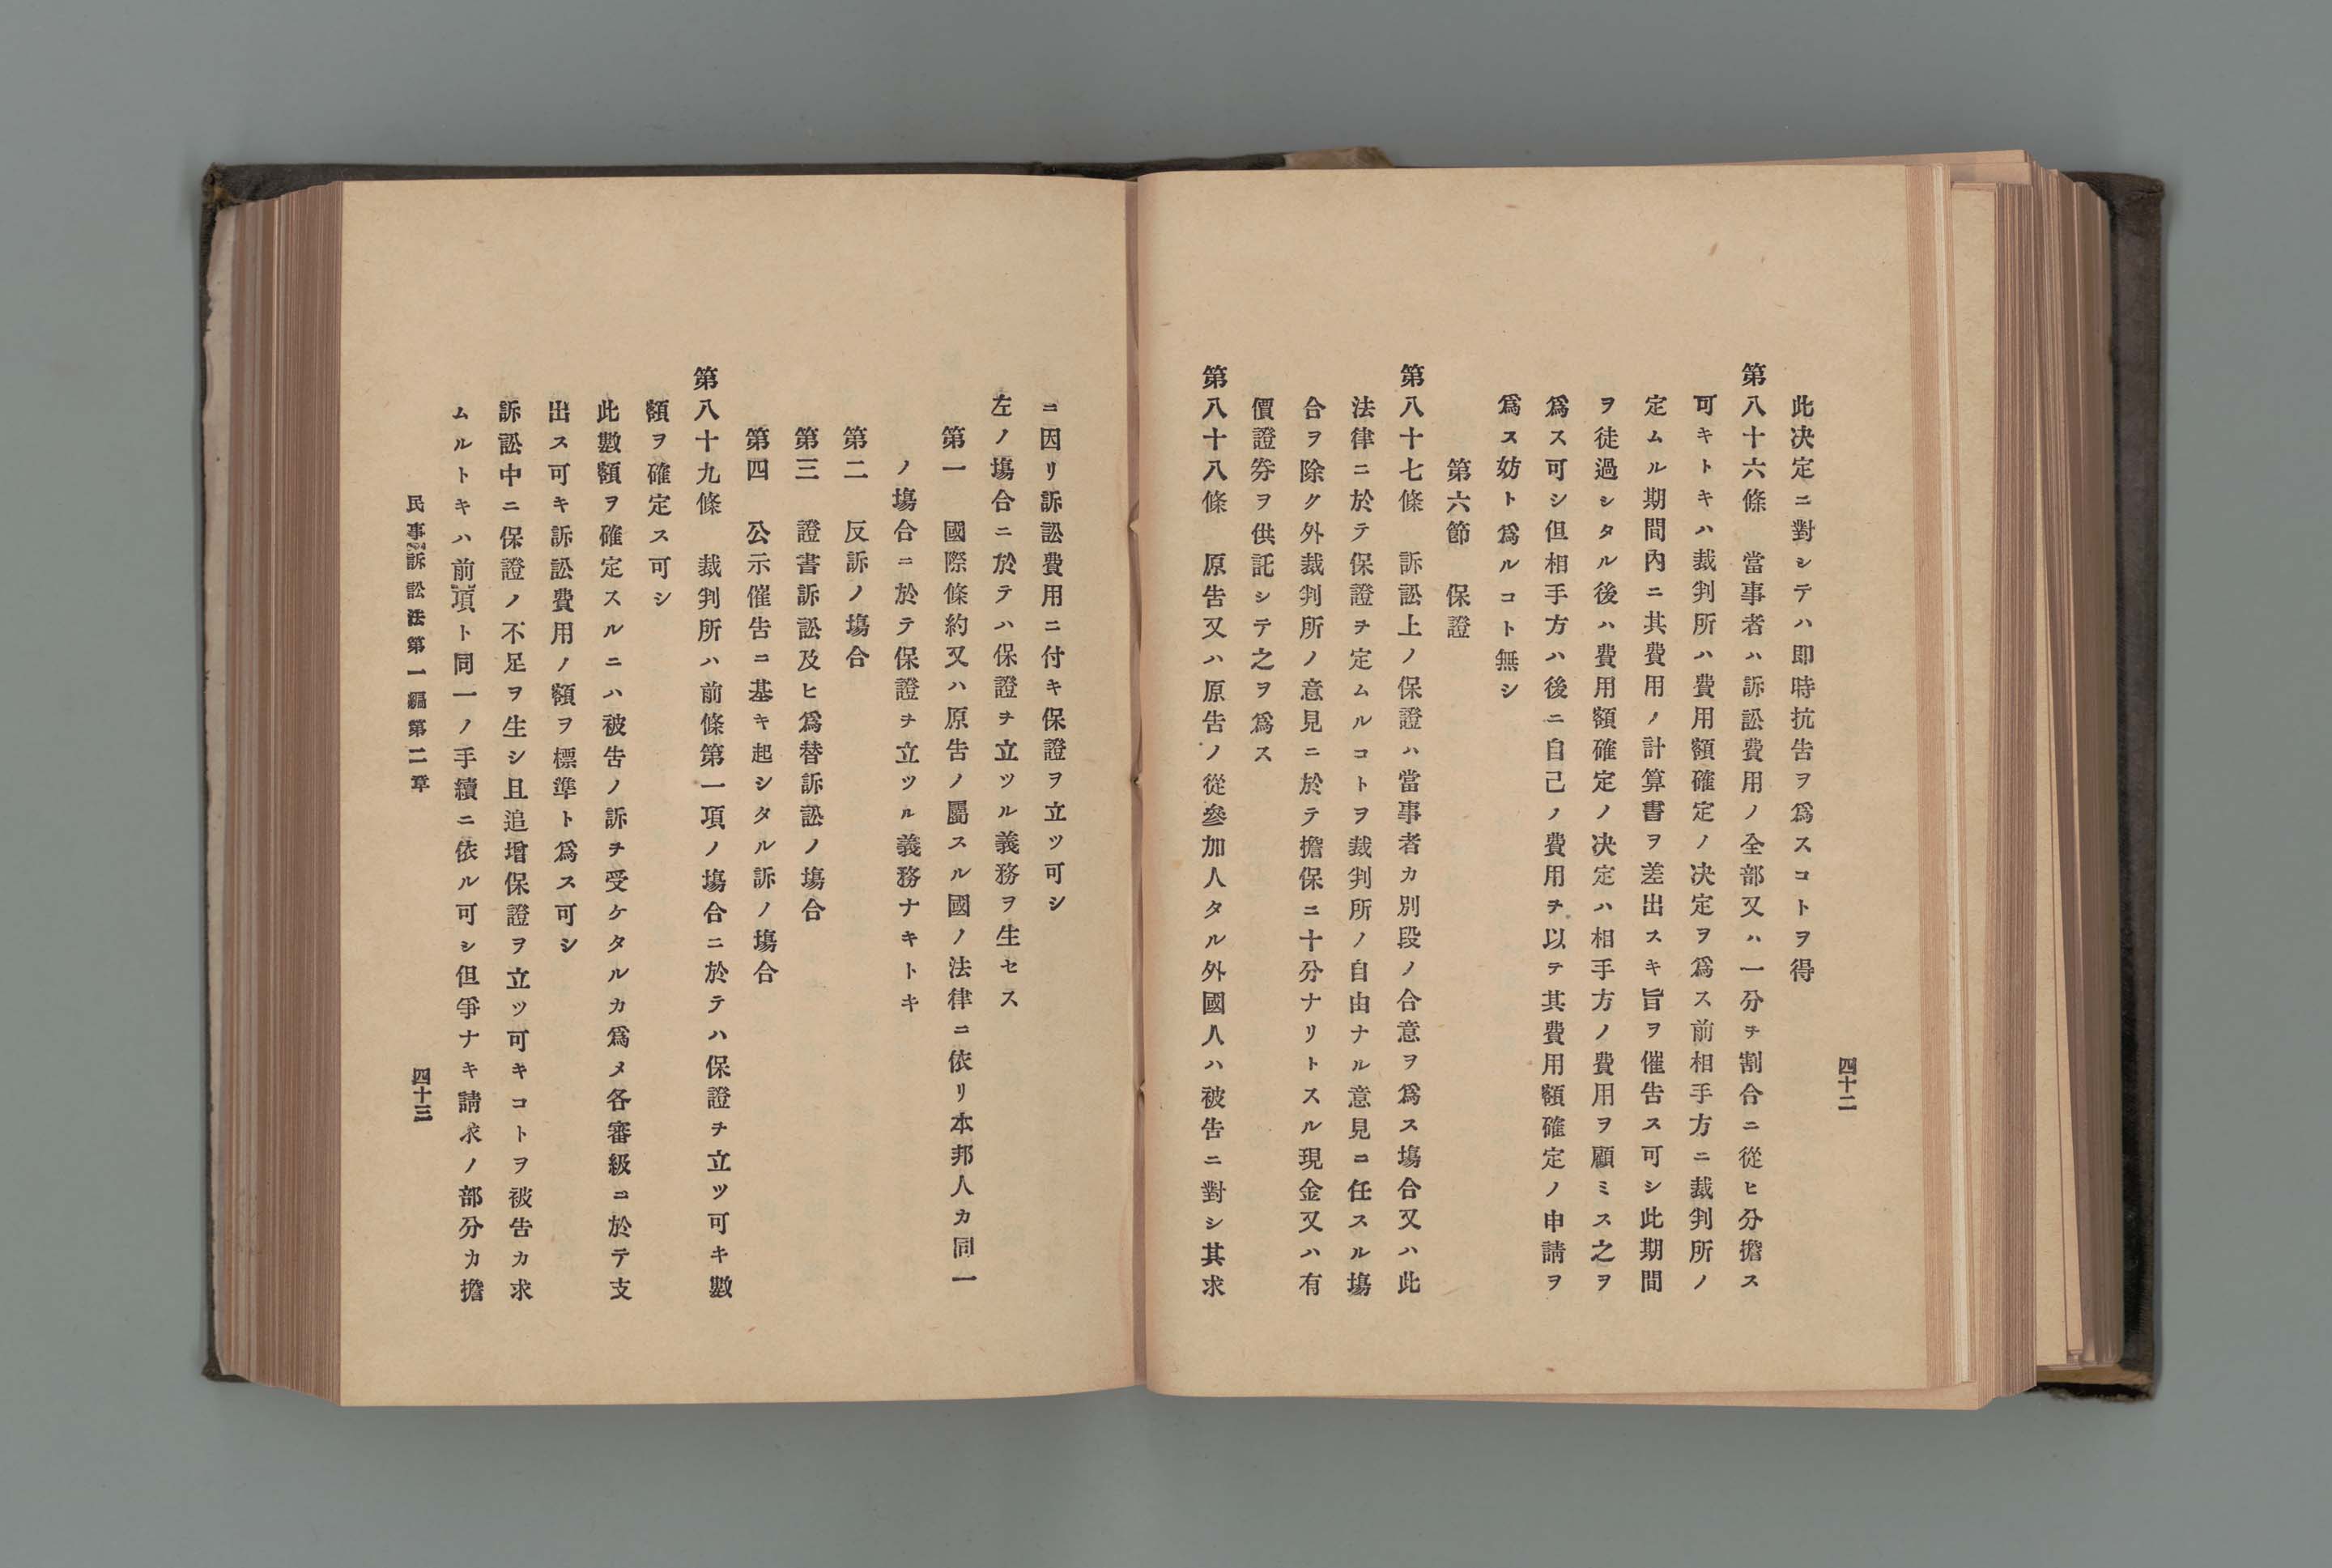 四十二
此決定ニ對シテハ即時抗告ヲ爲スコトヲ得
第八十六條　當事者ハ訴訟費用ノ全部又ハ一分ヲ割合ニ從ヒ分擔ス
可キトキハ裁判所ハ費用額確定ノ決定ヲ爲ス前相手方ニ裁判所ノ
定ムル期間內ニ其費用ノ計算書ヲ差出スキ旨ヲ催告ス可シ此期間
ヲ徒過シタル後ハ費用額確定ノ決定ハ相手方ノ費用ヲ顧ミス之ヲ
爲ス可シ但相手方ハ後ニ自己ノ費用ヲ以テ其費用額確定ノ申請ヲ
爲ス妨ト爲ルコト無シ
第六節　保證
第八十七條　訴訟上ノ保證ハ當事者カ別段ノ合意ヲ爲ス塲合又ハ此
法律ニ於テ保證ヲ定ムルコトヲ裁判所ノ自由ナル意見ニ任スル塲
合ヲ除ク外裁判所ノ意見ニ於テ擔保ニ十分ナリトスル現金又ハ有
價證券ヲ供託シテ之ヲ爲ス
第八十八條　原告又ハ原告ノ從參加人タル外國人ハ被告ニ對シ其求
ニ因リ訴訟費用ニ付キ保證ヲ立ツ可シ
左ノ塲合ニ於テハ保證ヲ立ツル義務ヲ生セス
第一　國際條約又ハ原告ノ屬スル國ノ法律ニ依リ本邦人カ同一
ノ塲合ニ於テ保證ヲ立ツル義務ナキトキ
第二　反訴ノ塲合
第三　證書訴訟及ヒ爲替訴訟ノ塲合
第四　公示催告ニ基キ起シタル訴ノ塲合
第八十九條　裁判所ハ前條第一項ノ塲合ニ於テハ保證ヲ立ツ可キ數
額ヲ確定ス可シ
此數額ヲ確定スルニハ被告ノ訴ヲ受ケタルカ爲メ各審級ニ於テ支
出ス可キ訴訟費用ノ額ヲ標準ト爲ス可シ
訴訟中ニ保證ノ不足ヲ生シ且追增保證ヲ立ツ可キコトヲ被告カ求
ムルトキハ前項ト同一ノ手續ニ依ル可シ但爭ナキ請求ノ部分カ擔
民事訴訟法第一編第二章
四十三